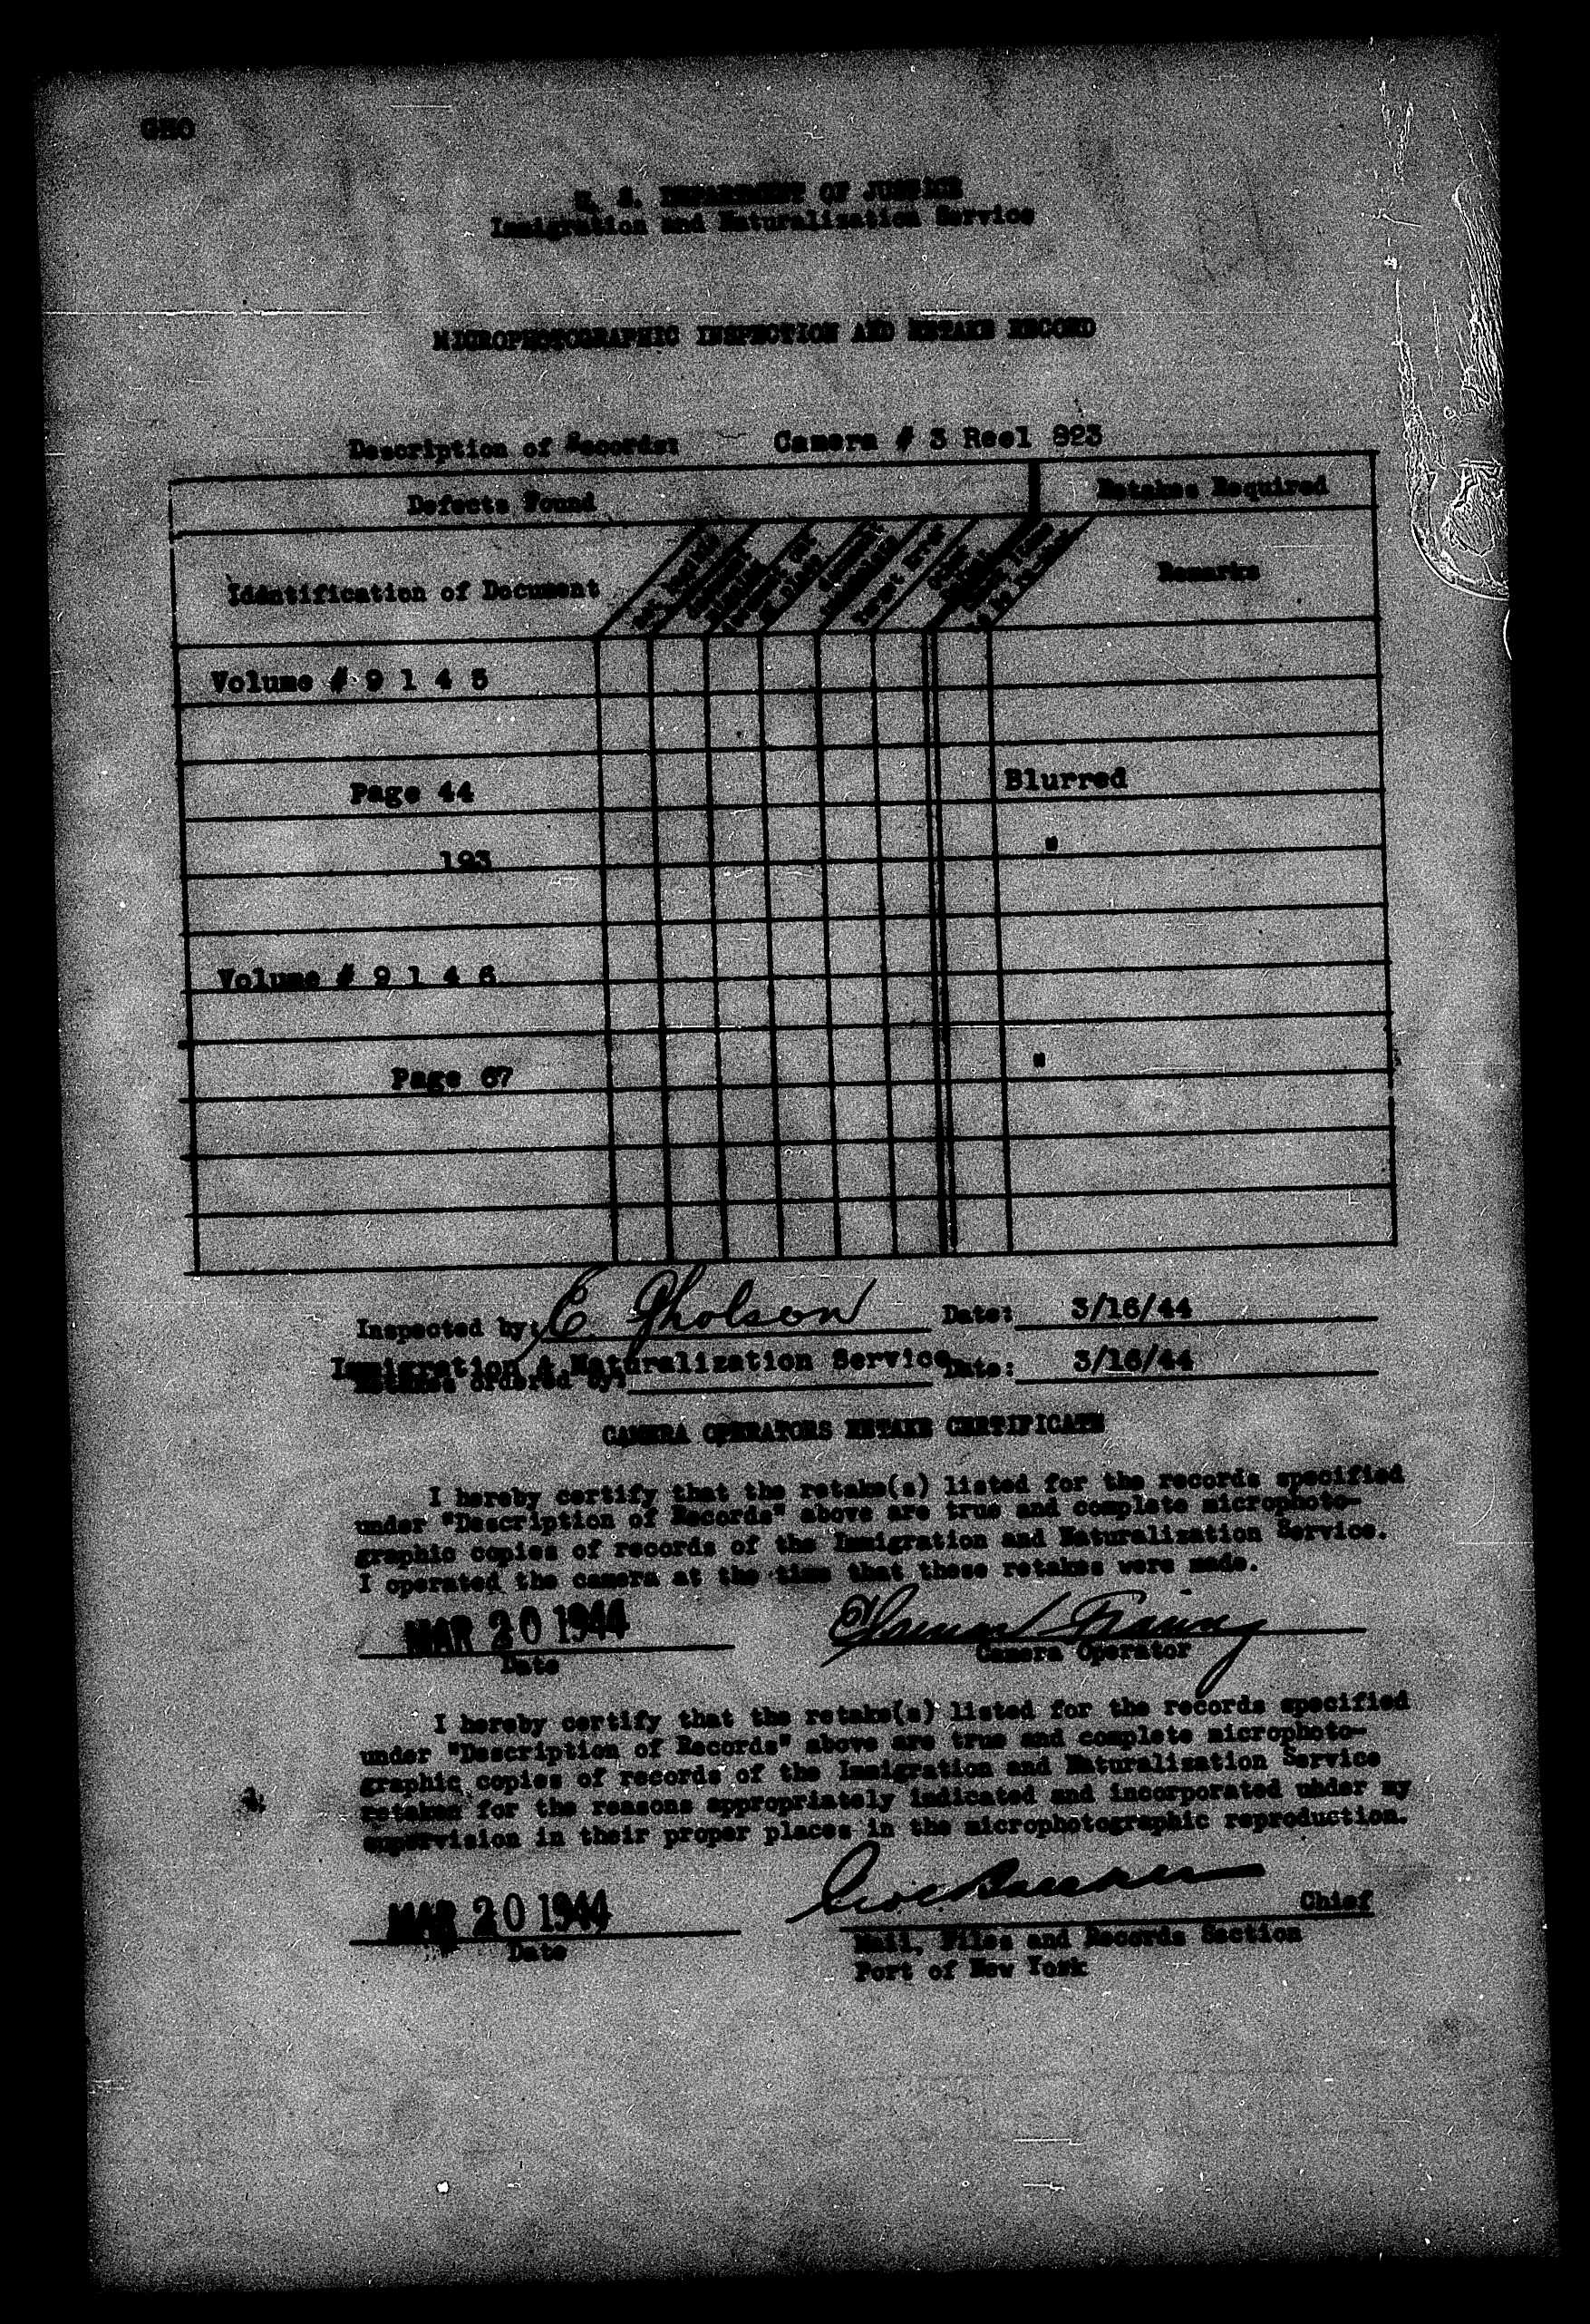 U. S. DEPARTMENT OF JUSTICE
Immigration and Naturalization Service
MICROPHOTOGRAPHIC INSPECTION AND RETAKE RECORD
Description of Records: Camera # 3 Reel 823
Defects Found Retakes Required
Identification of Document Remarks
Volume # 9 1 4 5
Page 44 Blurred
193 "
Volume # 9 1 4 6
Page 67 "
Inspected by: E Gholson Date: 3/16/44
Immigration & Naturalization Service
Retakes ordered by: Date: 3/16/44
CAMERA OPERATORS RETAKE CERTIFICATE
I hereby certify that the retake(s) listed for the records specified
under "Description of Records" above are true and complete microphoto-
graphic copies of records of the Immigration and Naturalization Service.
I operated the camera at the time that these retakes were made.
MAR 20 1944
Date Camera Operator
I hereby certify that the retake(s) listed for the records specified
under "Description of Records" above are true and complete microphoto-
graphic copies of records of the Immigration and Naturalization Service
retaken for the reasons appropriately indicated and incorporated under my
supervision in their proper places in the microphotographic reproduction.
MAR 20 1944 Chief
Date Mail, Files and Records Section
Port of New York